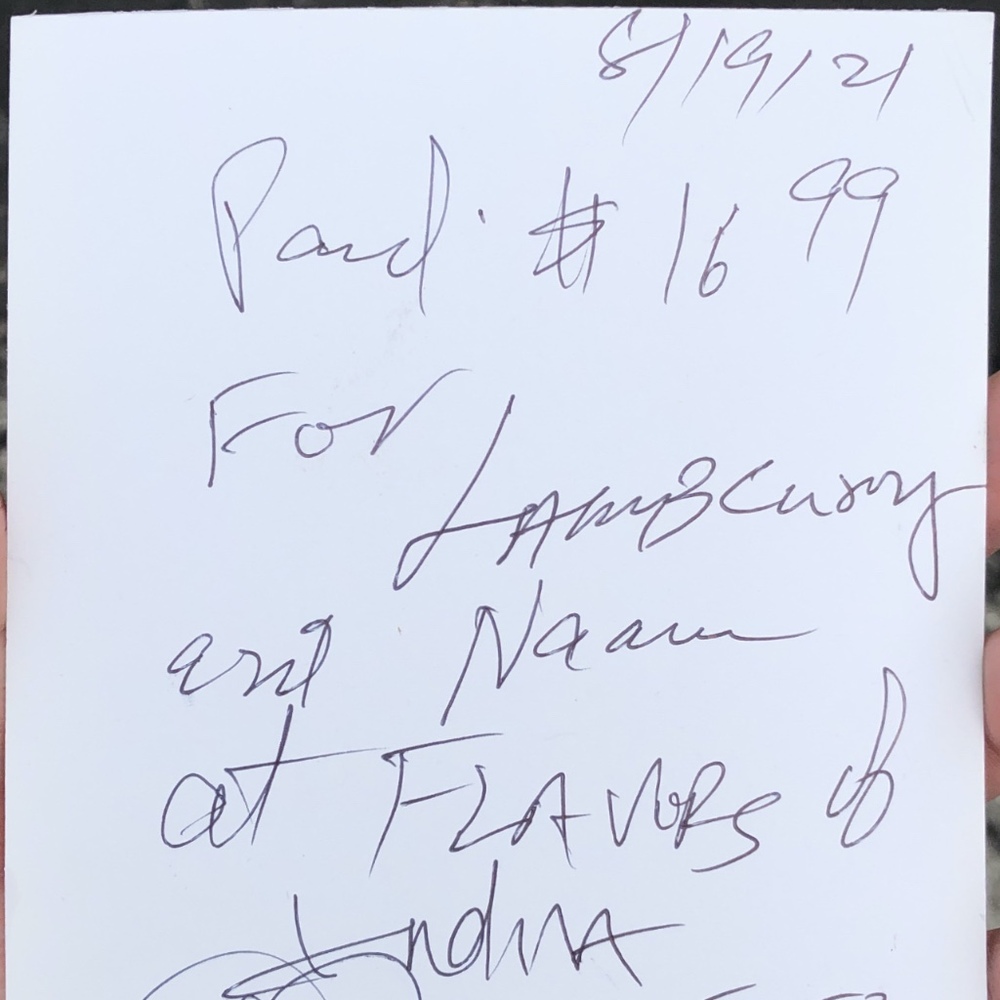 8/19/21
Paid $16 99
For
LAmB Curry
and Naan
at FLAVORS of
IndiA